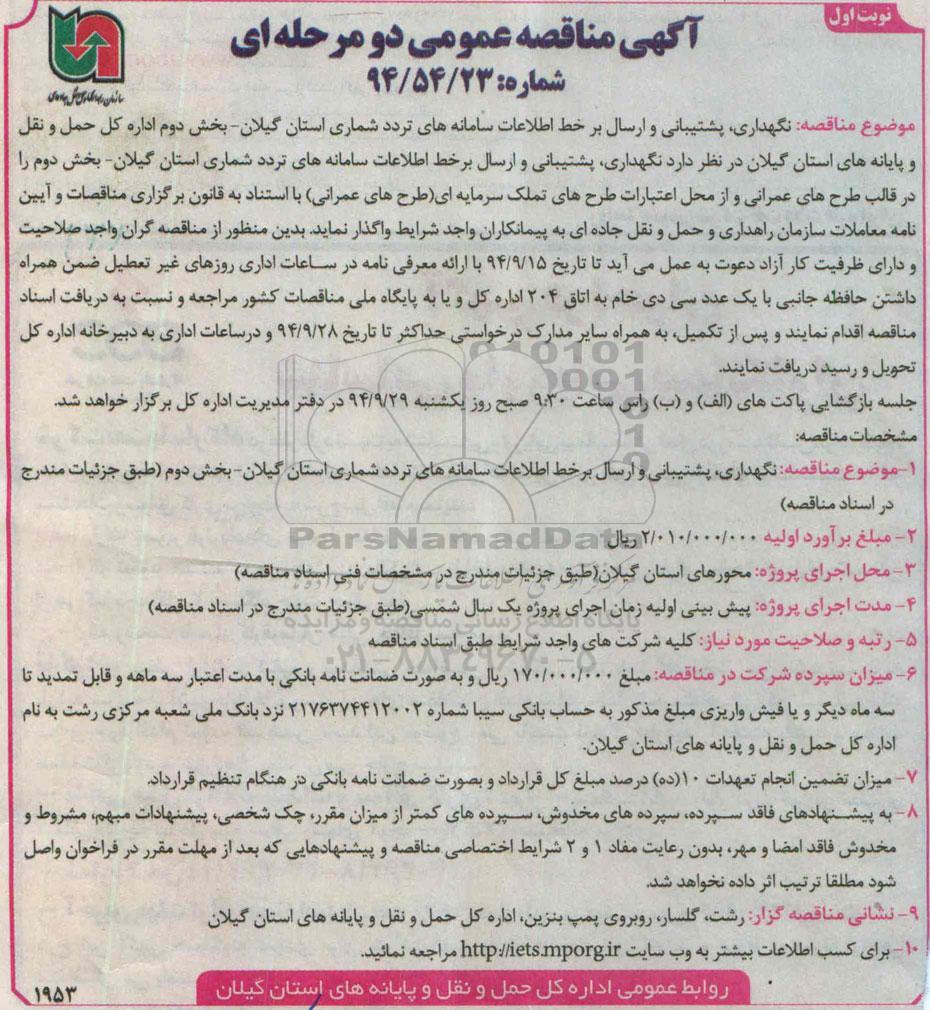 نوبت اول
آگهی مناقصه عمومی دو مرحله ای
شماره: ۹۴/۵۴/۲۳
موضوع مناقصه: نگهداری، پشتیبانی و ارسال بر خط اطلاعات سامانه های تردد شماری استان گیلان- بخش دوم اداره کل حمل و نقل
و پایانه های استان گیلان در نظر دارد نگهداری، پشتیبانی و ارسال برخط اطلاعات سامانه های تردد شماری استان گیلان- بخش دوم را
در قالب طرح های عمرانی و از محل اعتبارات طرح های تملک سرمایه ای(طرح های عمرانی) با استناد به قانون برگزاری مناقصات و آیین
نامه معاملات سازمان راهداری و حمل و نقل جاده ای به پیمانکاران واجد شرایط واگذار نماید. بدین منظور از مناقصه گران واجد صلاحیت
و دارای ظرفیت کار آزاد دعوت به عمل می آید تا تاریخ ۹۴/۹/۱۵ با ارائه معرفی نامه در ساعات اداری روزهای غیر تعطیل ضمن همراه
داشتن حافظه جانبی با یک عدد سی دی خام به اتاق ۲۰۴ اداره کل و یا به پایگاه ملی مناقصات کشور مراجعه و نسبت به دریافت اسناد
مناقصه اقدام نمایند و پس از تکمیل، به همراه سایر مدارک درخواستی حداکثر تا تاریخ ۹۴/۹/۲۸ و درساعات اداری به دبیرخانه اداره کل
تحویل و رسید دریافت نمایند.
جلسه بازگشایی پاکت های (الف) و (ب) راس ساعت ۹:۳۰ صبح روز یکشنبه ۹۴/۹/۲۹ در دفتر مدیریت اداره کل برگزار خواهد شد.
مشخصات مناقصه:
۱-موضوع مناقصه: نگهداری، پشتیبانی و ارسال برخط اطلاعات سامانه های تردد شماری استان گیلان- بخش دوم (طبق جزئیات مندرج
در اسناد مناقصه)
۲- مبلغ برآورد اولیه ۲/۰۱۰/۰۰۰/۰۰۰ ریال
ParsNamadData
۳- محل اجرای پروژه: محورهای استان گیلان(طبق جزئیات مندرج در مشخصات فنی اسناد مناقصه)
۴- مدت اجرای پروژه: پیش بینی اولیه زمان اجرای پروژه یک سال شمسی(طبق جزئیات مندرج در اسناد مناقصه)
پایگاه اطلاع رسانی مناقصه و مزایده
۵- رتبه و صلاحیت مورد نیاز: کلیه شرکت های واجد شرایط طبق اسناد مناقصه
۰۲۱-۸۸۳۴۹۶۷۰-۵
۶- میزان سپرده شرکت در مناقصه: مبلغ ۱۷۰/۰۰۰/۰۰۰ ریال و به صورت ضمانت نامه بانکی با مدت اعتبار سه ماهه و قابل تمدید تا
سه ماه دیگر و یا فیش واریزی مبلغ مذکور به حساب بانکی سیبا شماره ۲۱۷۶۳۷۴۴۱۲۰۰۲ نزد بانک ملی شعبه مرکزی رشت به نام
اداره کل حمل و نقل و پایانه های استان گیلان.
۷- میزان تضمین انجام تعهدات ۱۰(ده) درصد مبلغ کل قرارداد و بصورت ضمانت نامه بانکی در هنگام تنظیم قرارداد.
۸- به پیشنهادهای فاقد سپرده، سپرده های مخدوش، سپرده های کمتر از میزان مقرر، چک شخصی، پیشنهادات مبهم، مشروط و
مخدوش فاقد امضا و مهر، بدون رعایت مفاد ۱ و ۲ شرایط اختصاصی مناقصه و پیشنهادهایی که بعد از مهلت مقرر در فراخوان واصل
شود مطلقا ترتیب اثر داده نخواهد شد.
۹- نشانی مناقصه گزار: رشت، گلسار، روبروی پمپ بنزین، اداره کل حمل و نقل و پایانه های استان گیلان
۱۰- برای کسب اطلاعات بیشتر به وب سایت http://iets.mporg.ir مراجعه نمائید.
روابط عمومی اداره کل حمل و نقل و پایانه های استان گیلان
۱۹۵۳